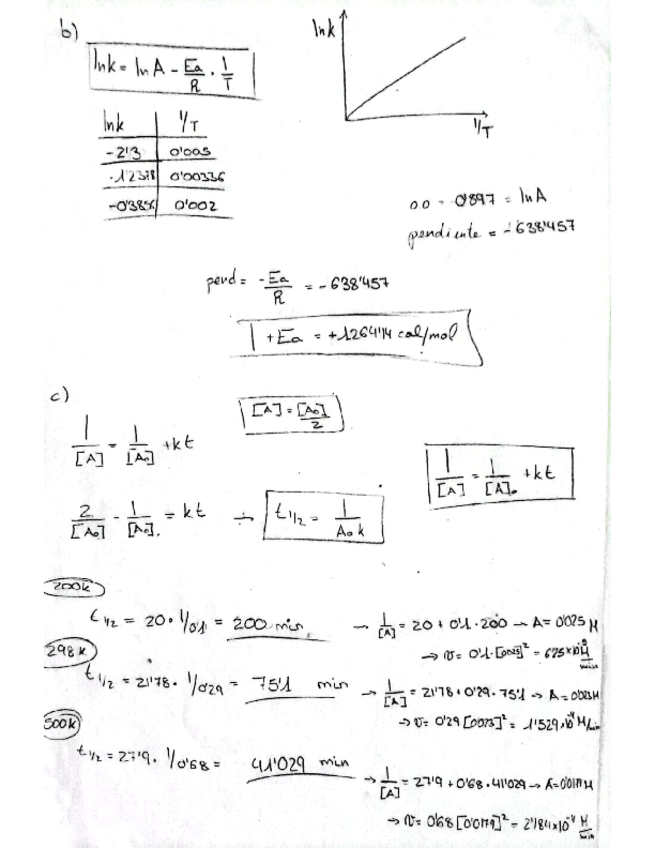 b)
lnk = lnA - Ea/R · 1/T
lnk
1/T
lnk | 1/T
-2'3 | 0'005
-1'2378 | 0'00336
-0'3856 | 0'002
00 = -0'897 = lnA
pendiente = -638'457
pend = -Ea/R = -638'457
+Ea = +1264'14 cal/mol
c)
[A] = [A₀]/2
1/[A] = 1/[A₀] + kt
1/[A] = 1/[A]₀ + kt
2/[A₀] - 1/[A₀] = kt → t1/2 = 1/A₀k
200k
t1/2 = 20 · 1/0'1 = 200 min → 1/[A] = 20 + 0'1 · 200 → A = 0'025 M
→ v = 0'1 · [0'025]² = 6'25×10 M/min
298k
t1/2 = 21'78 · 1/0'29 = 75'1 min → 1/[A] = 21'78 + 0'29 · 75'1 → A = 0'023 M
→ v = 0'29 [0'023]² = 1'529×10⁻⁴ M/min
500k
t1/2 = 27'9 · 1/0'68 = 41'029 min
→ 1/[A] = 27'9 + 0'68 · 41'029 → A = 0'0179 M
→ v = 0'68 [0'0179]² = 2'184×10⁻⁴ M/min